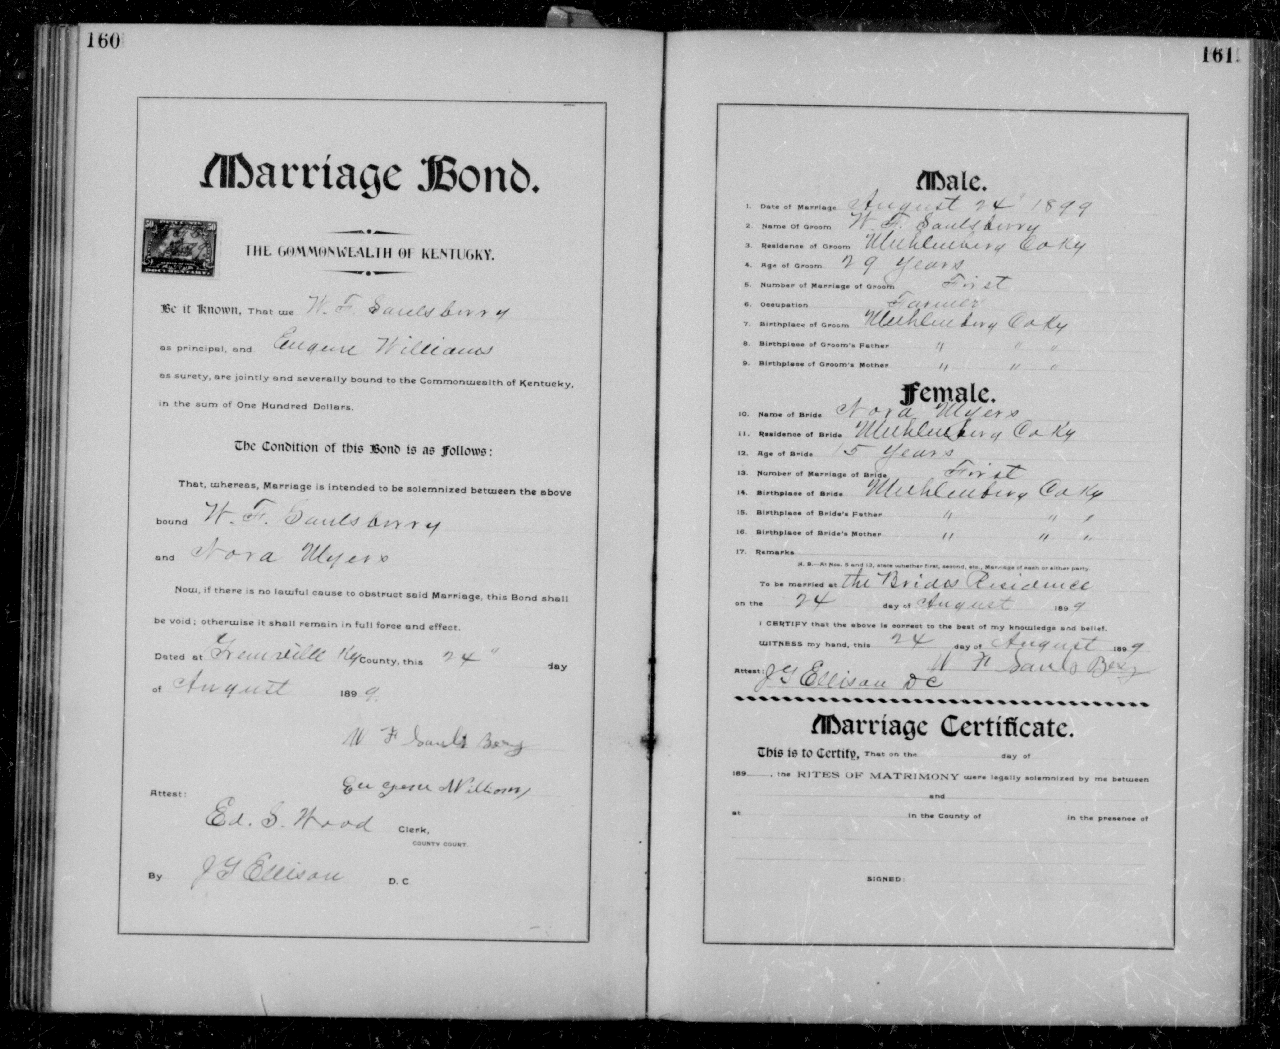 160
Marriage Bond.
THE COMMONWEALTH OF KENTUCKY.
Be it Known, That we W. F. Saulsberry
as principal, and Eugene Williams
as surety, are jointly and severally bound to the Commonwealth of Kentucky,
in the sum of One Hundred Dollars.
The Condition of this Bond is as Follows:
That, whereas, Marriage is intended to be solemnized between the above
bound W. F. Saulsberry
and Nora Myers
Now, if there is no lawful cause to obstruct said Marriage, this Bond shall
be void; otherwise it shall remain in full force and effect.
Dated at Greenville Ky County, this 24" day
of August 1899
W F Sauls Bery
Eugene Williams
Attest:
Ed. S. Wood Clerk,
COUNTY COURT.
By J G Ellison D. C
161
Male.
1. Date of Marriage August 24 1899
2. Name Of Groom W. F. Saulsberry
3. Residence of Groom Muhlenberg Co Ky
4. Age of Groom 29 years
5. Number of Marriage of Groom First
6. Occupation Farmer
7. Birthplace of Groom Muhlenberg Co Ky
8. Birthplace of Groom's Father " " "
9. Birthplace of Groom's Mother " " "
Female.
10. Name of Bride Nora Myers
11. Residence of Bride Muhlenberg Co Ky
12. Age of Bride 15 years
13. Number of Marriage of Bride First
14. Birthplace of Bride Muhlenberg Co Ky
15. Birthplace of Bride's Father " " "
16. Birthplace of Bride's Mother " " "
17. Remarks
N. B.—At Nos. 5 and 13, state whether first, second, etc., Marriage of each or either party.
To be married at the Brides Residence
on the 24 day of August 1899
I CERTIFY that the above is correct to the best of my knowledge and belief.
WITNESS my hand, this 24 day of August 1899
W F Sauls Bery
Attest: J G Ellison D C
Marriage Certificate.
This is to Certify, That on the day of
189 , the RITES OF MATRIMONY were legally solemnized by me between
and
at in the County of in the presence of
SIGNED: